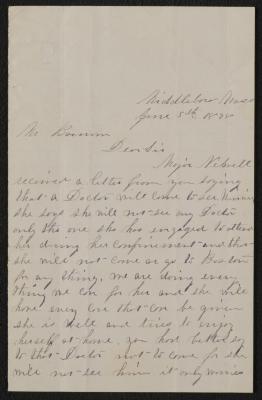 Middleboro Mass
June 5th
Mr Barnum
Dear Sir
Major Newell
received a letter from you saying
that a Doctor will come to see Minnie
she says she will not see any Doctor
only the one she has engaged to attend
her during her confinement and that
she will not come or go to Boston
for any thing, we are doing every
thing we can for her and she will
have every care that can be given
she is well and tries to enjoy
herself at home. you had better say
to that Doctor not to come for she
will not see him it only worries